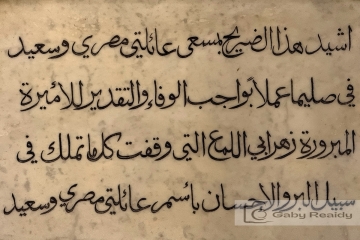 اشيد هذا الضريح بمسعى عائلتي مصري وسعيد
في صليما عملاً بواجب الوفاء والتقدير للأميرة
المبرورة زهر ابي اللمع التي وقفت كل ما تملك في
سبيل البر والاحسان باسم عائلتي مصري وسعيد
Gaby Reaidy